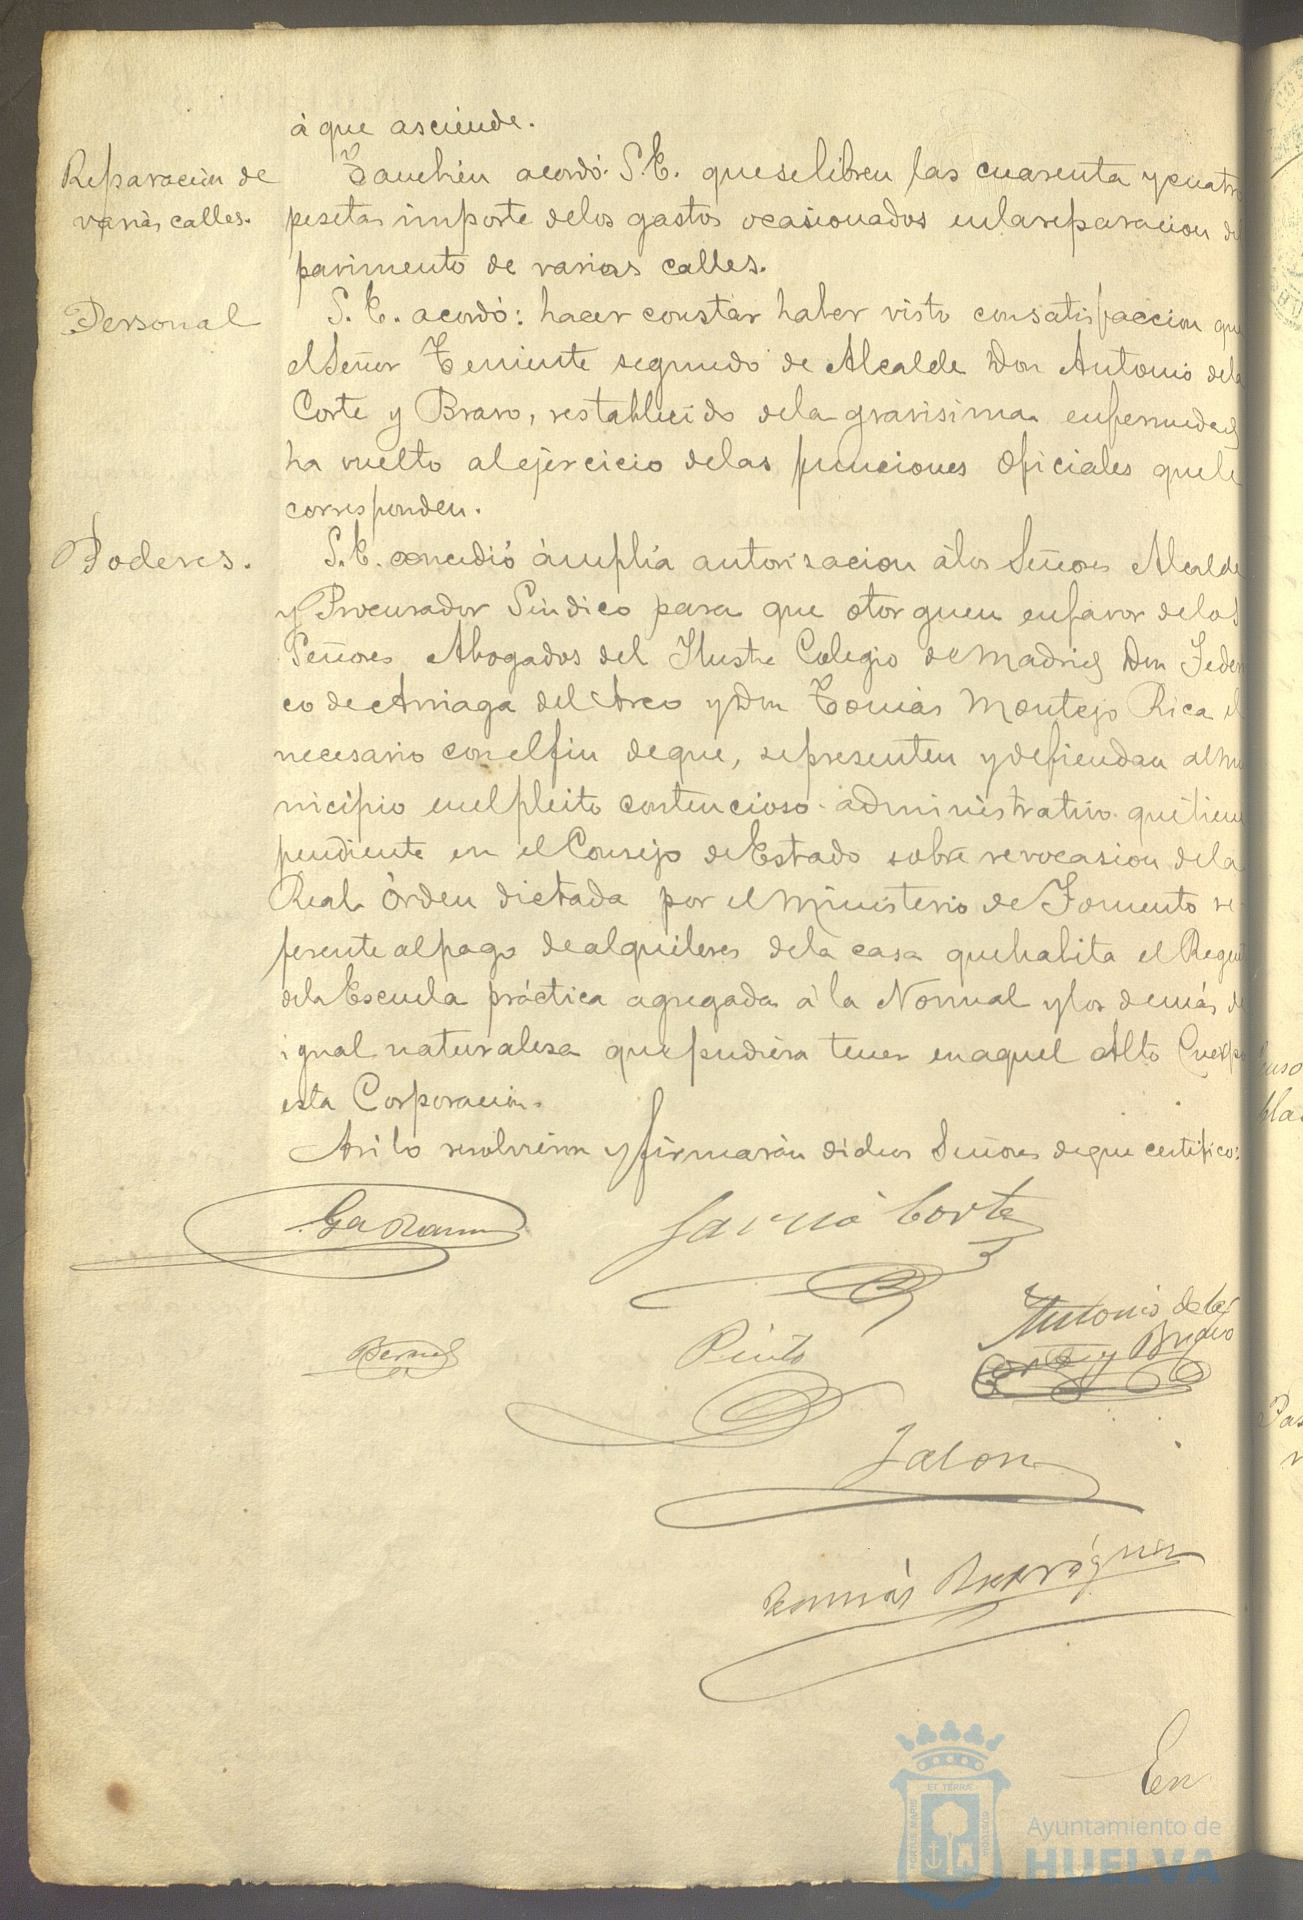 á que asciende.
Reparación de
varias calles.
Tambien acordó S.E. que se libren las cuarenta y cuatro
pesetas importe de los gastos ocasionados en la reparacion del
pavimento de varias calles.
Personal
S.E. acordó: hacer constar haber visto con satisfaccion que
el Señor Teniente segundo de Alcalde Don Antonio de la
Corte y Bravo, restablecido de la gravisima enfermedad
ha vuelto al ejercicio de las funciones oficiales que le
corresponden.
Poderes.
S.E. concedió ámplia autorisacion á los Señores Alcalde
y Procurador Síndico para que otorguen en favor de los
Señores Abogados del Ilustre Colegio de Madrid Don Federi
co de Arriaga del Arco y Don Tomás Montejo Rica el
necesario con el fin de que, representen y defiendan al Mu
nicipio en el pleito contencioso-administrativo que tiene
pendiente en el Consejo de Estado sobre revocasion de la
Real Órden dictada por el Ministerio de Fomento re
ferente al pago de alquileres de la casa que habita el Regente
de la Escuela práctica agregada á la Normal y los demás de
igual naturalesa que pudiera tener en aquel Alto Cuerpo
esta Corporación.
Asi lo resolvieron y firmarán dichos Señores de que certifico:
García Corte
Antonio de la
Corte y Bravo
Bernal
Pinto
Jalon
Tomás Rodríguez
En
PORTUS MARIS
ET TERRAE
CUSTODIA
Ayuntamiento de
HUELVA